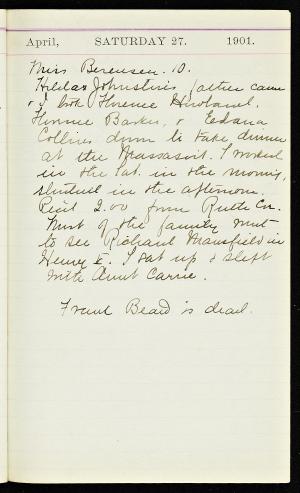 April, SATURDAY 27. 1901.
Miss Berensen. 10.
Hildas Johnstins father came
& I took Florence Howland,
Florence Barker, & Edana
Collins down to take dinner
at the Massasoit. I worked
in the Lab. in the morning,
studied in the afternoon.
Rec'd 2.00 from Ruth Co.
Most of the family went
to see Richard Mansfield in
Henry V. I sat up & slept
with Aunt Carrie.
Frank Beard is dead.